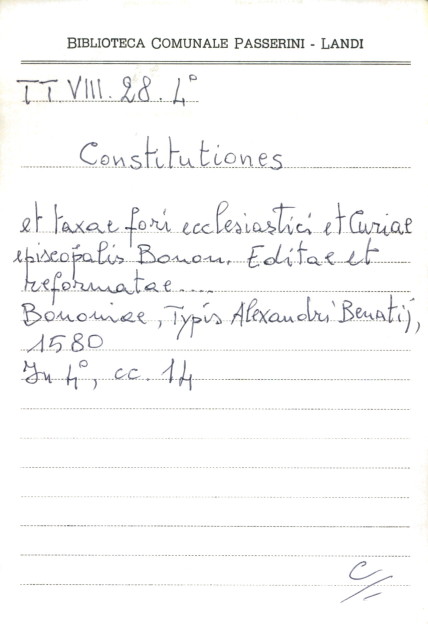 BIBLIOTECA COMUNALE PASSERINI - LANDI
TT VIII. 28. 4°
Constitutiones
et taxae fori ecclesiastici et Curiae
episcopalis Bonon. Editae et
reformatae....
Bononiae, Typis Alexandri Benatij,
1580
In 4°, cc. 14
C